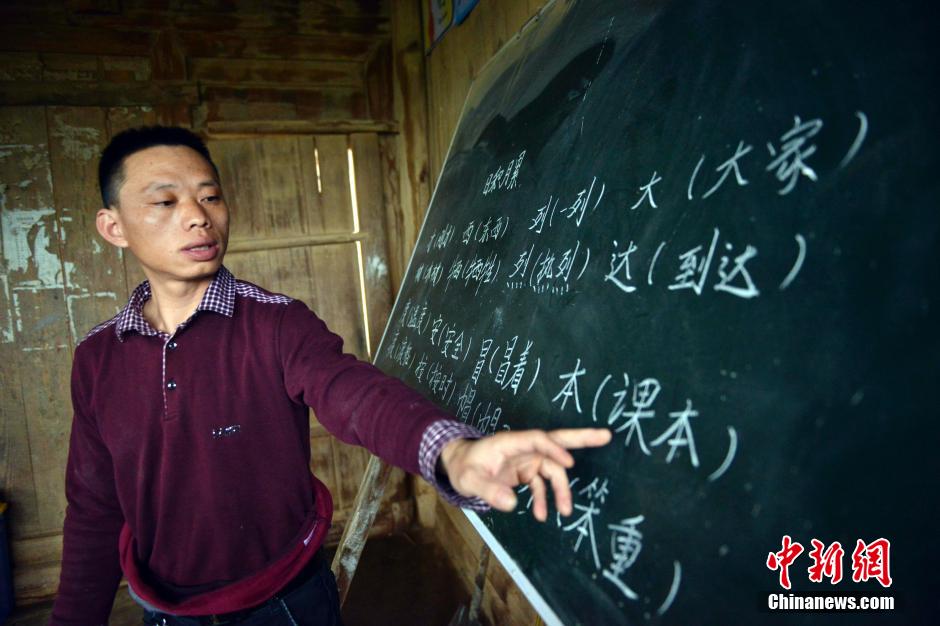 日积月累
西(东西) 列(一列) 大(大家)
牺(牺牲) 列(排列) 达(到达)
度(温度) 安(安全) 冒(冒着) 本(课本)
按(按时) 帽(帽 (笨重)
中新网
Chinanews.com